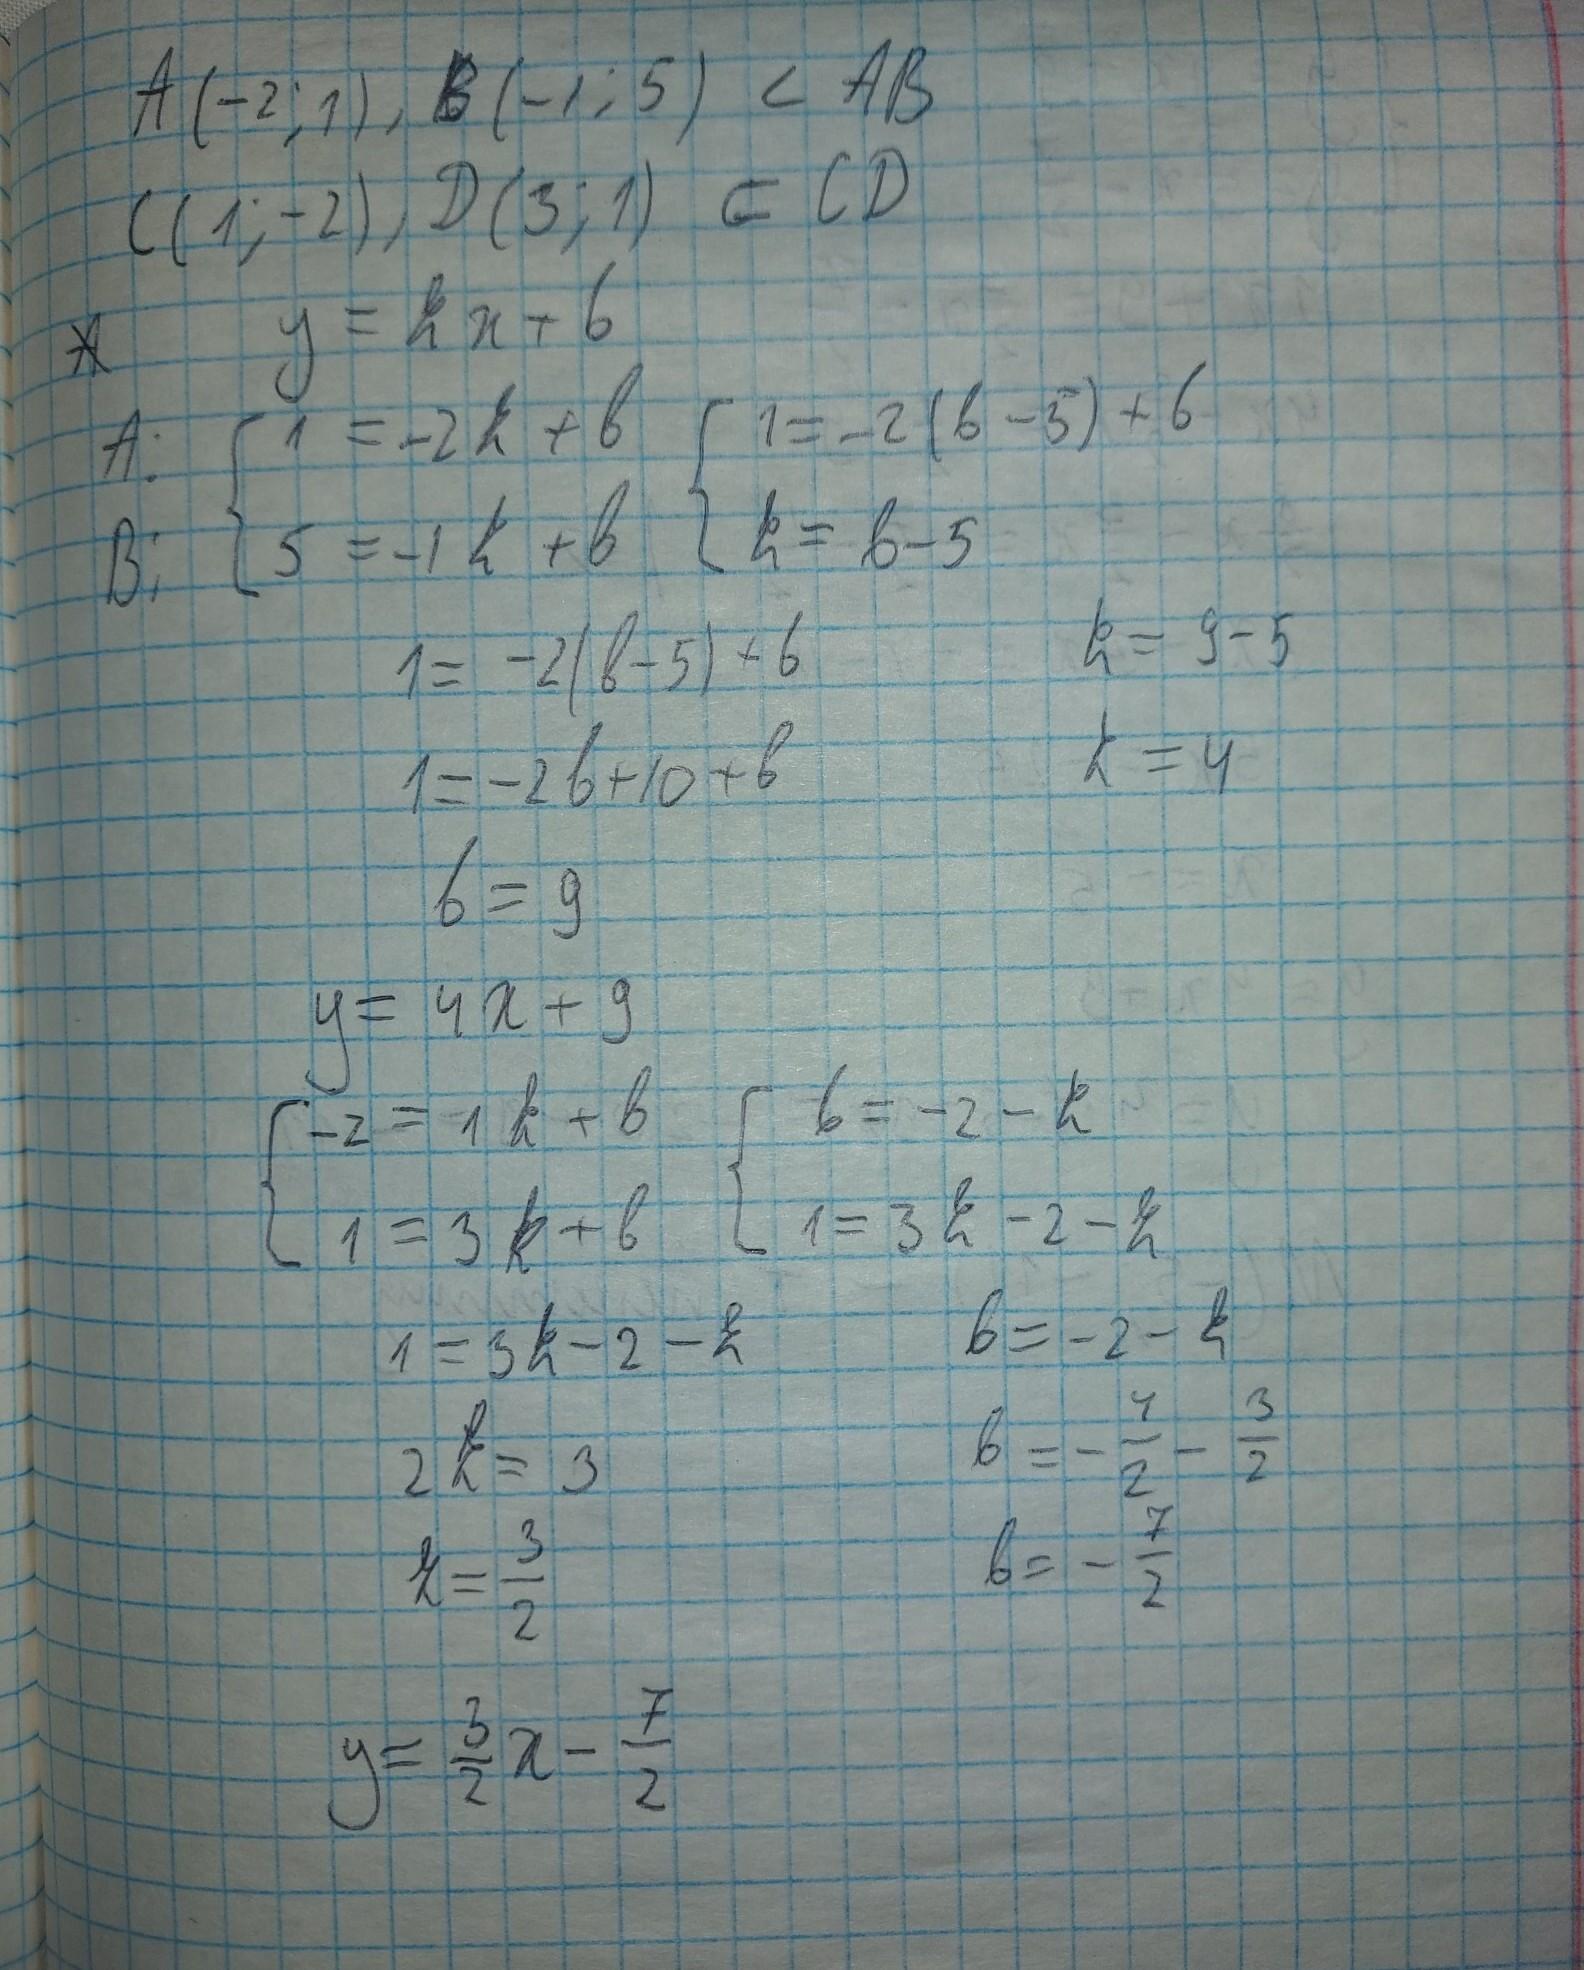 A(-2;1), B(-1;5) ⊂ AB
C(1;-2), D(3;1) ⊂ CD
y = kx + b
A: { 1 = -2k + b { 1 = -2(b - 5) + b
B: 5 = -1k + b k = b - 5
1 = -2(b-5) + b k = 9 - 5
1 = -2b + 10 + b k = 4
b = 9
y = 4x + 9
{ -2 = 1k + b { b = -2 - k
1 = 3k + b 1 = 3k - 2 - k
1 = 3k - 2 - k b = -2 - k
2k = 3 b = -4/2 - 3/2
k = 3/2 b = -7/2
y = 3/2 x - 7/2